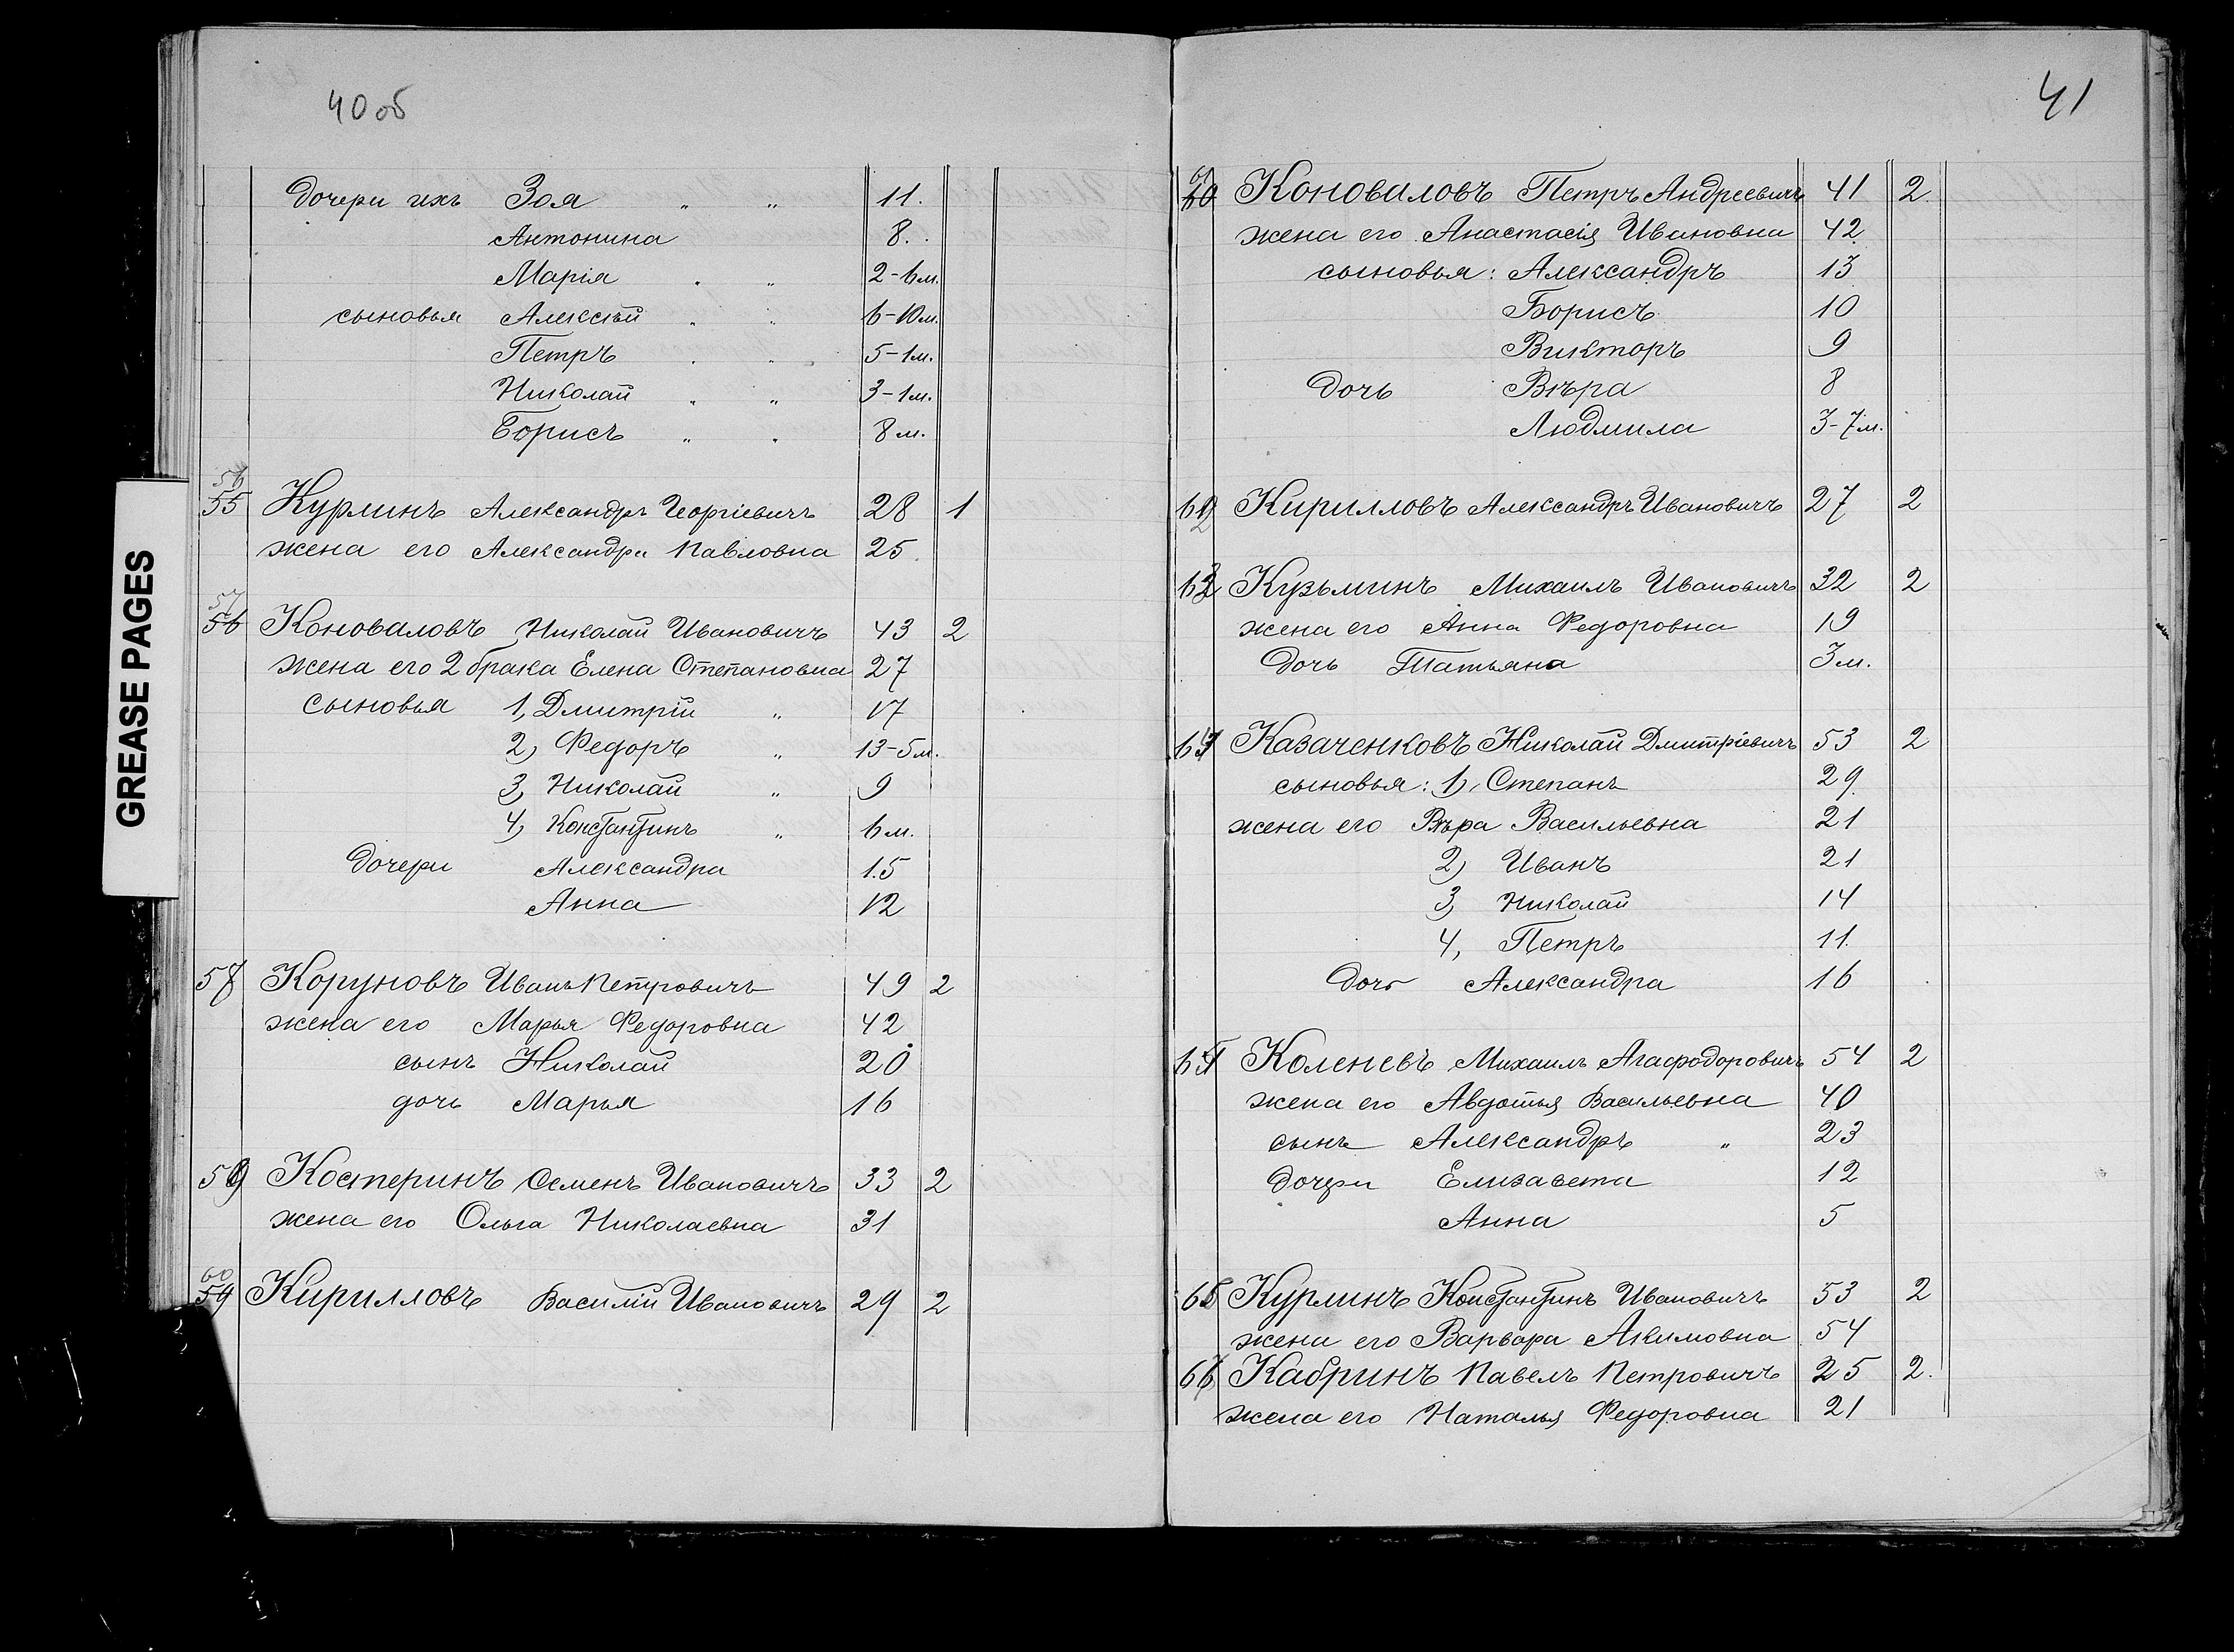 40 об
дочери ихъ Зоя " " 11.
Антонина 8.
Марія " " 2-6 м.
сыновья Алексѣй " " 6-10 м.
Петръ " " 5-1 м.
Николай " " 3-1 м.
Борисъ " " 8 м.
56
55 Курлинъ Александръ Георгіевичъ 28 1
жена его Александра Павловна 25
57
56 Коноваловъ Николай Ивановичъ 43 2
жена его 2 брака Елена Степановна 27
сыновья 1, Дмитрій " 17
2) Федоръ " 13-5 м.
3, Николай " 9
4, Константинъ " 6 м.
дочери Александра 15
Анна 12
58 Коруновъ Иванъ Петровичъ 49 2
жена его Марья Федоровна 42
сынъ Николай 20
дочь Марья 16
59 Костеринъ Семенъ Ивановичъ 33 2
жена его Ольга Николаевна 31
60
59 Кирилловъ Василій Ивановичъ 29 2
GREASE PAGES
41
61
60 Коноваловъ Петръ Андреевичъ 41 2.
жена его Анастасія Ивановна 42
сыновья: Александръ 13
Борисъ 10
Викторъ 9
дочь Вѣра 8
Людмила 3-7 м.
62 Кирилловъ Александръ Ивановичъ 27 2
63 Кузьминъ Михаилъ Ивановичъ 32 2
жена его Анна Федоровна 19
дочь Татьяна 3 м.
64 Казаченковъ Николай Дмитріевичъ 53 2
сыновья: 1), Степанъ 29
жена его Вѣра Васильевна 21
2) Иванъ 21
3, Николай 14
4, Петръ 11
дочь Александра 16
65 Коленевъ Михаилъ Агафодоровичъ 54 2
жена его Авдотья Васильевна 40
сынъ Александръ " 23
дочери Елизавета 12
Анна 5
66 Курлинъ Константинъ Ивановичъ 53 2
жена его Варвара Акимовна 54
67 Кабринъ Павелъ Петровичъ 25 2.
жена его Наталья Федоровна 21